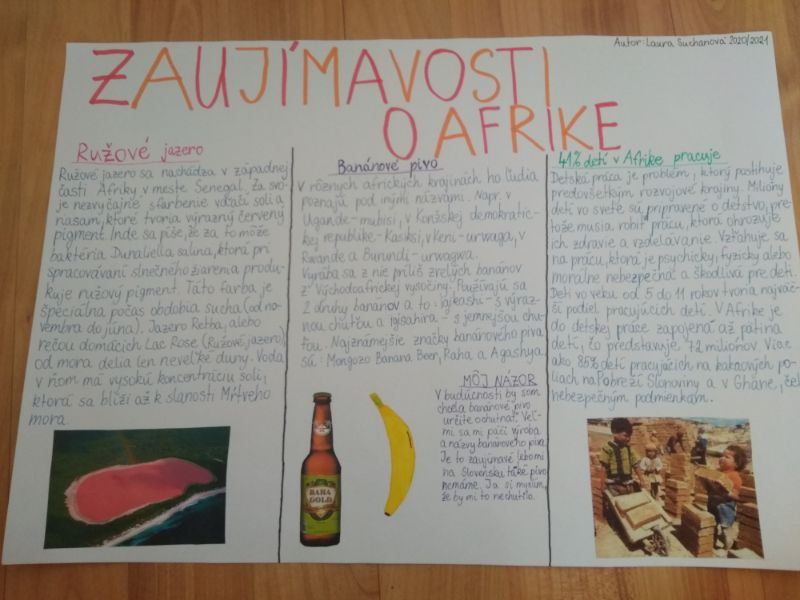 Autor: Laura Suchanová 2020/2021
ZAUJÍMAVOSTI
O AFRIKE
Ružové jazero
Ružové jazero sa nachádza v západnej
časti Afriky v meste Senegal. Za svo-
je nezvyčajné sfarbenie vďačí soli a
riasam, ktoré tvoria výrazný červený
pigment. Inde sa píše, že za to môže
baktéria Dunaliella salina, ktorá pri
spracovávaní slnečného žiarenia produ-
kuje ružový pigment. Táto farba je
špeciálna počas obdobia sucha (od no-
vembra do júna). Jazero Retba, alebo
rečou domácich Lac Rose (Ružové jazero),
od mora delia len neveľké duny. Voda
v ňom má vysokú koncentráciu soli,
ktorá sa blíži až k slanosti Mŕtveho
mora.
Banánové pivo
V rôznych afrických krajinách ho ľudia
poznajú pod inými názvami. Napr. v
Ugande - mubisi, v Konžskej demokratic-
kej republike - Kasiksi, v Keni - urwaga, v
Rwande a Burundi - urwagwa.
Vyrába sa z nie príliš zrelých banánov
z Východoafrickej vysočiny. Používajú sa
2 druhy banánov a to: igikashi - s výraz-
nou chuťou a igisahira - s jemnejšou chu-
ťou. Najznámejšie značky banánového piva
sú: Mongozo Banana Beer, Raha a Agashya.
MÔJ NÁZOR
V budúcnosti by som
chcela banánové pivo
určite ochutnať. Veľ-
mi sa mi páči výroba
a názvy banánového piva.
Je to zaujímavé lebo mi
na Slovensku také pivo
nemáme. Ja si myslím,
že by mi to nechutilo.
RAHA
GOLD
41% detí v Afrike pracuje
Detská práca je problém, ktorý postihuje
predovšetkým rozvojové krajiny. Milióny
detí vo svete sú pripravené o detstvo, pre-
tože musia robiť prácu, ktorá ohrozuje
ich zdravie a vzdelávanie. Vzťahuje sa
na prácu, ktorá je psychicky, fyzicky alebo
morálne nebezpečná a škodlivá pre deti.
Deti vo veku od 5 do 11 rokov tvoria najväč-
ší podiel pracujúcich detí. V Afrike je
do detskej práce zapojená až pätina
detí, čo predstavuje 72 miliónov. Viac
ako 85% detí pracujúcich na kakaových po-
liach na Pobreží Slonoviny a v Ghane, čelí
nebezpečným podmienkam.